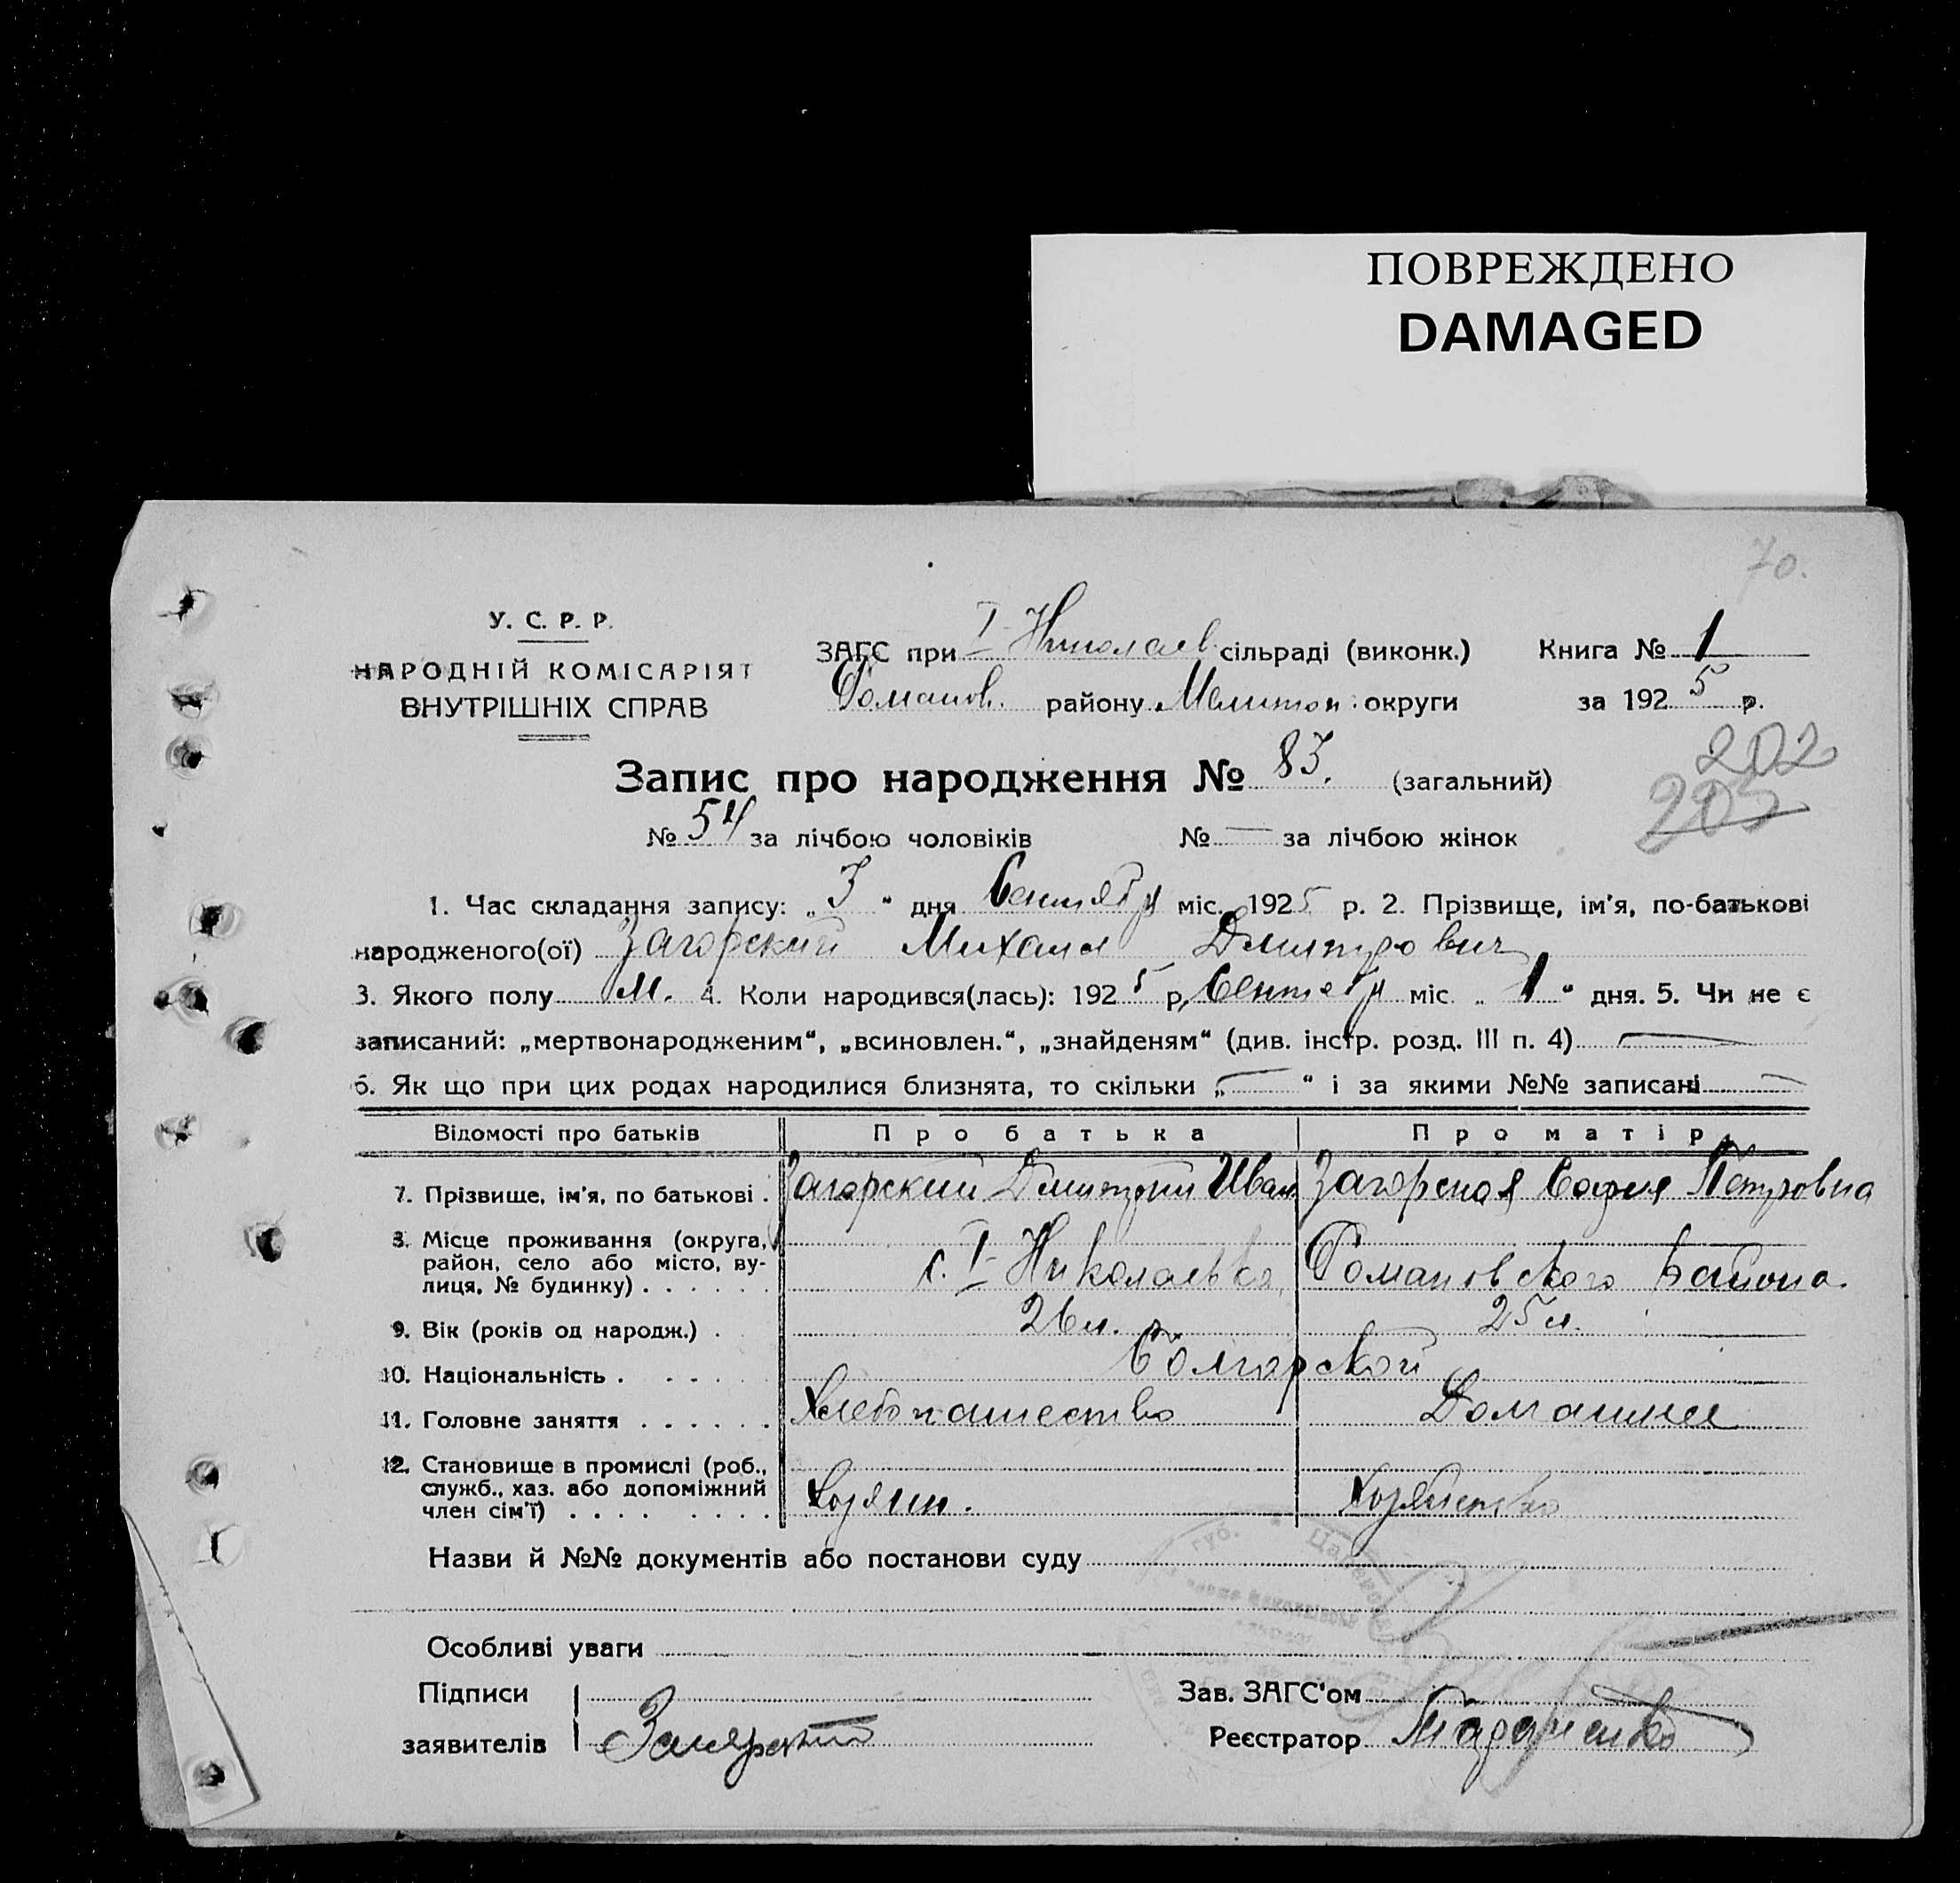 ПОВРЕЖДЕНО
DAMAGED
70.
У. С. Р. Р.
НАРОДНІЙ КОМІСАРІЯТ
ВНУТРІШНІХ СПРАВ
ЗАГС при I Николаев. сільраді (виконк.) Книга № 1
Романов. району Мелитоп. округи за 1925 р.
202
Запис про народження № 83. (загальний)
203
№ 54 за лічбою чоловіків № — за лічбою жінок
1. Час складання запису: „3“ дня Сентября міс. 1925 р. 2. Прізвище, ім'я, по-батькові
народженого(ої) Загорский Михаил Дмитрович
3. Якого полу М. 4. Коли народився(лась): 1925 р. Сентября міс. „1“ дня. 5. Чи не є
записаний: „мертвонародженим“, „всиновлен.“, „знайденям“ (див. інстр. розд. III п. 4) —
6. Як що при цих родах народилися близнята, то скільки „—“ і за якими №№ записані —
Відомості про батьків Про батька Про матір
7. Прізвище, ім'я, по батькові . Загорский Дмитрий Иван. Загорская София Петровна
8. Місце проживання (округа,
район, село або місто, ву-
лиця, № будинку) . . . . . . с. I Николаевка Романовского Района.
9. Вік (років од народж.) . 26 л. 25 л.
10. Національність . . . . . Болгарской
11. Головне заняття . . . . . . Хлебопашество Домашнее
12. Становище в промислі (роб.,
служб., хаз. або допоміжний
член сім'ї) . . . . . . . . Хозяин. Хозяйство
Назви й №№ документів або постанови суду
Особливі уваги
Підписи Зав. ЗАГС'ом
заявителів Загорский Реєстратор